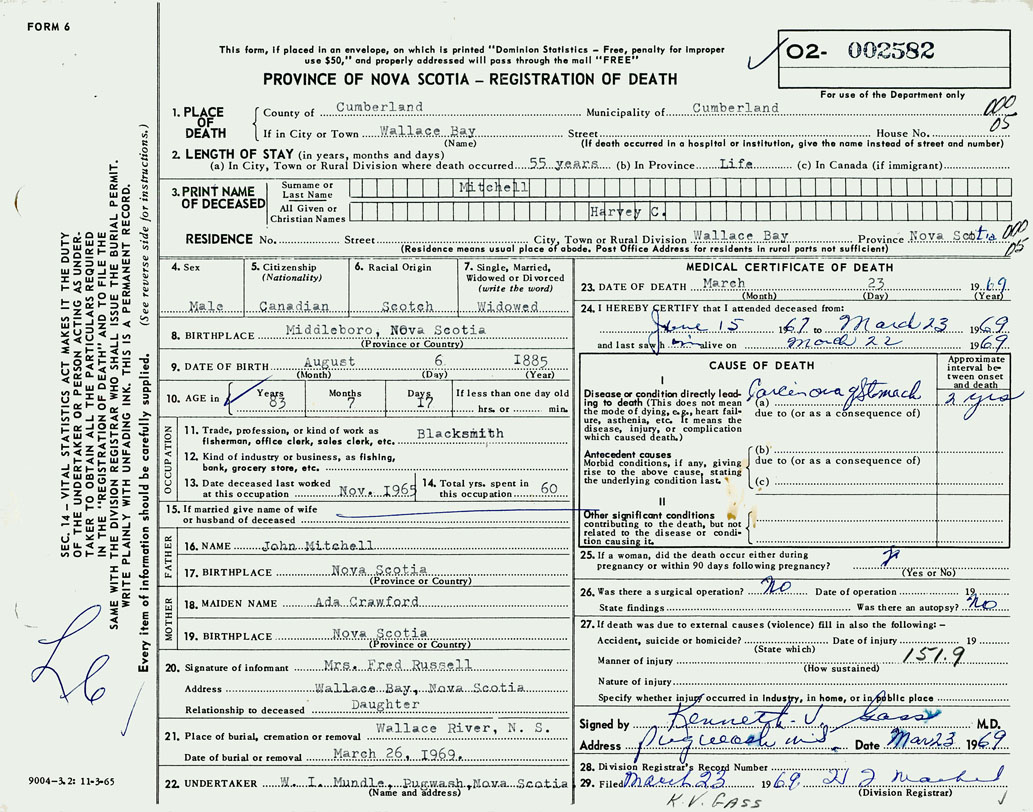 FORM 6
This form, if placed in an envelope, on which is printed "Dominion Statistics – Free, penalty for improper
use $50," and properly addressed will pass through the mail "FREE"
PROVINCE OF NOVA SCOTIA – REGISTRATION OF DEATH
02- 002582
For use of the Department only
1. PLACE OF DEATH
County of Cumberland Municipality of Cumberland 000
If in City or Town Wallace Bay Street House No. 05
(Name) (If death occurred in a hospital or institution, give the name instead of street and number)
2. LENGTH OF STAY (in years, months and days)
(a) In City, Town or Rural Division where death occurred 55 years (b) In Province Life (c) In Canada (if immigrant)
3. PRINT NAME OF DECEASED
Surname or Last Name Mitchell
All Given or Christian Names Harvey C.
RESIDENCE No. Street City, Town or Rural Division Wallace Bay Province Nova Scotia 000
(Residence means usual place of abode. Post Office Address for residents in rural parts not sufficient) 05
4. Sex
Male
5. Citizenship
(Nationality)
Canadian
6. Racial Origin
Scotch
7. Single, Married,
Widowed or Divorced
(write the word)
Widowed
8. BIRTHPLACE Middleboro, Nova Scotia
(Province or Country)
9. DATE OF BIRTH August 6 1885
(Month) (Day) (Year)
10. AGE in Years Months Days If less than one day old
83 7 17 hrs. or min.
OCCUPATION
11. Trade, profession, or kind of work as
fisherman, office clerk, sales clerk, etc. Blacksmith
12. Kind of industry or business, as fishing,
bank, grocery store, etc.
13. Date deceased last worked
at this occupation Nov. 1965
14. Total yrs. spent in
this occupation 60
15. If married give name of wife
or husband of deceased
FATHER
16. NAME John Mitchell
17. BIRTHPLACE Nova Scotia
(Province or Country)
MOTHER
18. MAIDEN NAME Ada Crawford
19. BIRTHPLACE Nova Scotia
(Province or Country)
20. Signature of informant Mrs. Fred Russell
Address Wallace Bay, Nova Scotia
Relationship to deceased Daughter
21. Place of burial, cremation or removal Wallace River, N. S.
Date of burial or removal March 26, 1969.
22. UNDERTAKER W. I. Mundle, Pugwash, Nova Scotia
(Name and address)
MEDICAL CERTIFICATE OF DEATH
23. DATE OF DEATH March 23 1969
(Month) (Day) (Year)
24. I HEREBY CERTIFY that I attended deceased from:
June 15 1967 to March 23 1969
and last saw him alive on March 22 1969
CAUSE OF DEATH
Approximate
interval be-
tween onset
and death
I
Disease or condition directly lead-
ing to death (This does not mean
the mode of dying, e.g., heart fail-
ure, asthenia, etc. It means the
disease, injury, or complication
which caused death.)
(a) Carcinoma of Stomach 2 yrs
due to (or as a consequence of)
Antecedent causes
Morbid conditions, if any, giving
rise to the above cause, stating
the underlying condition last.
(b)
due to (or as a consequence of)
(c)
II
Other significant conditions
contributing to the death, but not
related to the disease or condi-
tion causing it.
25. If a woman, did the death occur either during
pregnancy or within 90 days following pregnancy?
(Yes or No)
26. Was there a surgical operation? No Date of operation 19
State findings Was there an autopsy? No
27. If death was due to external causes (violence) fill in also the following: –
Accident, suicide or homicide? Date of injury 19
(State which)
Manner of injury 151.9
(How sustained)
Nature of injury
Specify whether injury occurred in Industry, in home, or in public place
Signed by Kenneth V. Gass M.D.
Address Pugwash N.S. Date Mar 23 1969
28. Division Registrar's Record Number
29. Filed March 23 1969
(Division Registrar)
K.V. GASS
SEC. 14 – VITAL STATISTICS ACT MAKES IT THE DUTY
OF THE UNDERTAKER OR PERSON ACTING AS UNDER-
TAKER TO OBTAIN ALL THE PARTICULARS REQUIRED
IN THE "REGISTRATION OF DEATH" AND TO FILE THE
SAME WITH THE DIVISION REGISTRAR WHO SHALL ISSUE THE BURIAL PERMIT.
WRITE PLAINLY WITH UNFADING INK. THIS IS A PERMANENT RECORD.
Every item of information should be carefully supplied. (See reverse side for instructions.)
9004–3.2: 11-3-65